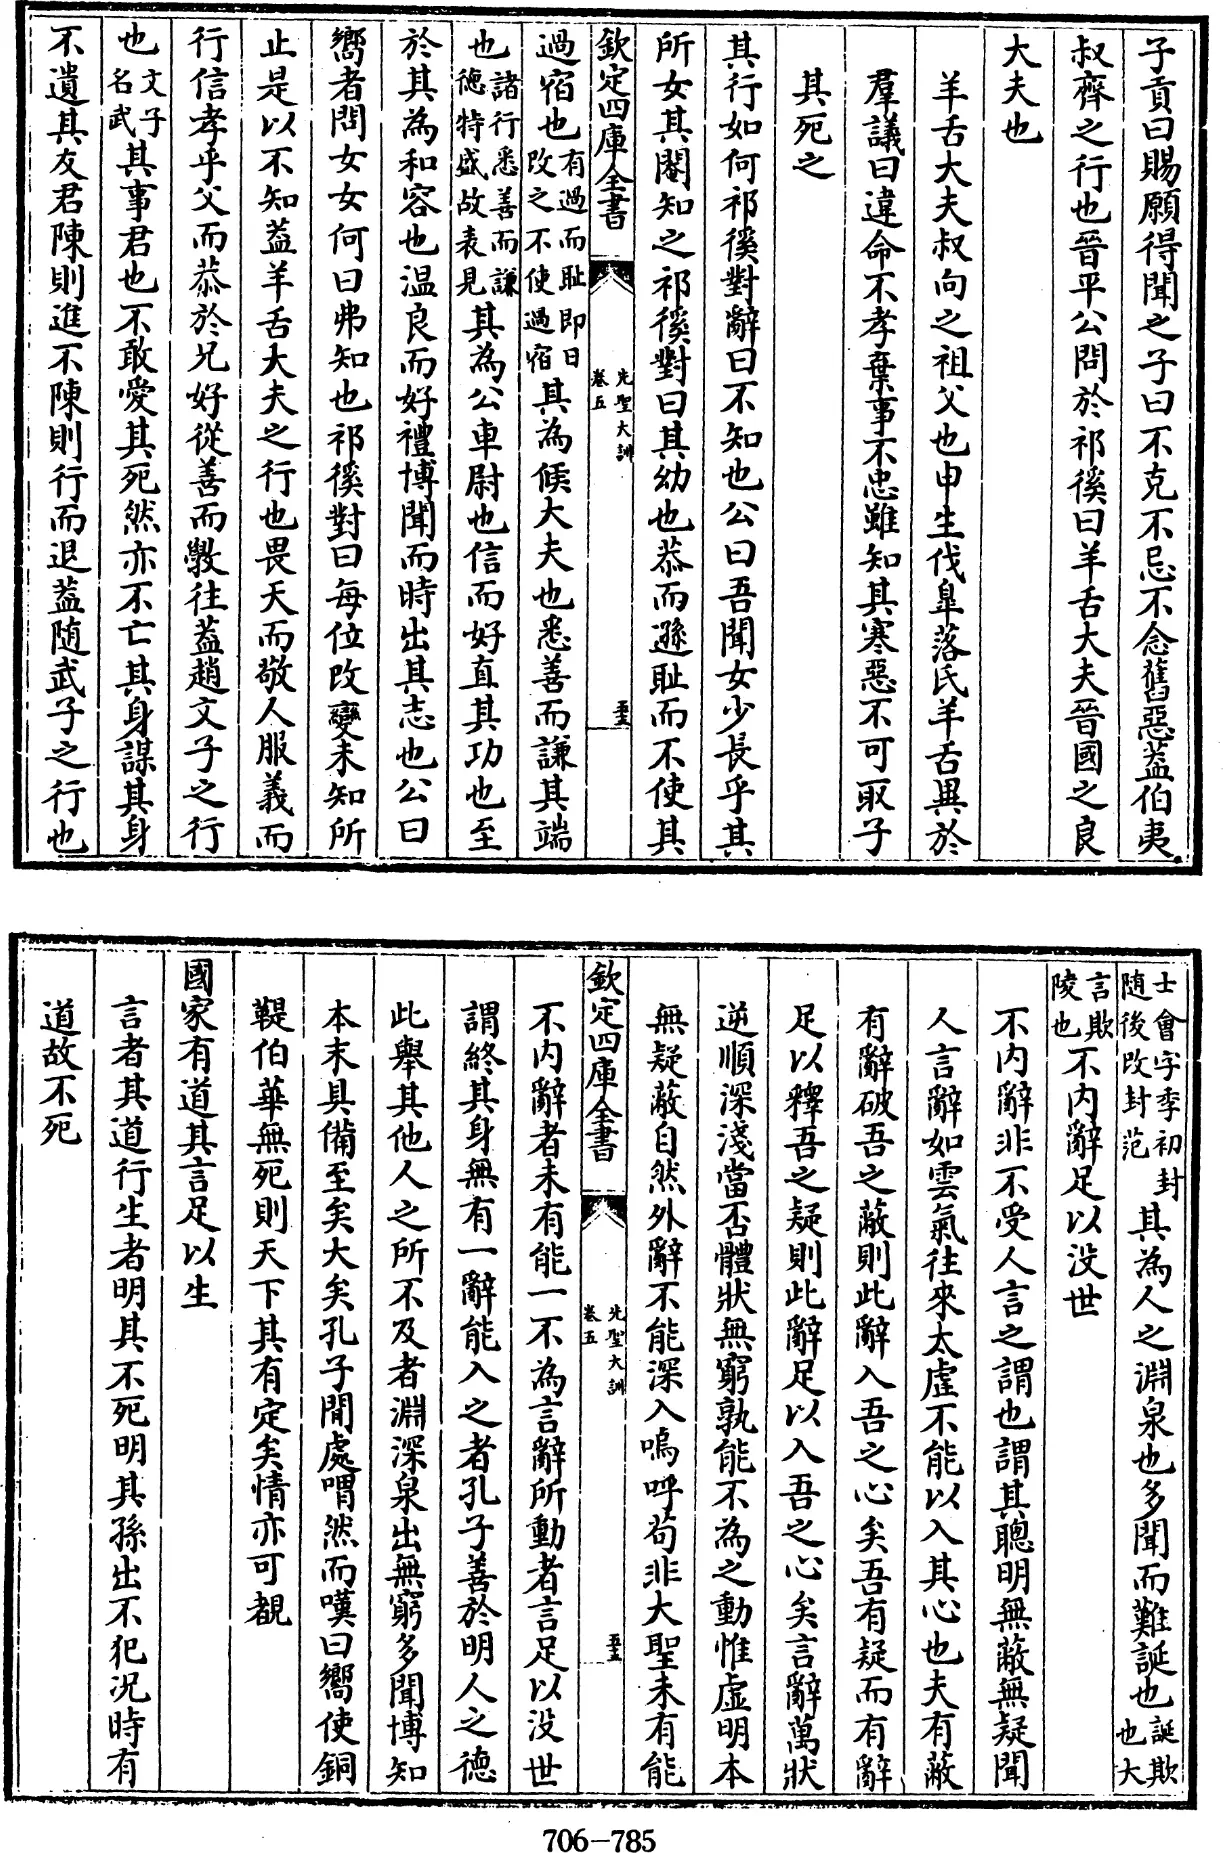 子貢曰賜願得聞之子曰不克不忌不念舊惡葢伯夷
叔齊之行也晉平公問於祁徯曰羊舌大夫晉國之良
大夫也
羊舌大夫叔向之祖父也申生伐臯落氏羊舌異於
羣議曰違命不孝棄事不忠雖知其寒惡不可取子
其死之
其行如何祁徯對辭曰不知也公曰吾聞女少長乎其
所女其閹知之祁徯對曰其幼也恭而遜耻而不使其
欽定四庫全書
先聖大訓
卷五
五十五
過宿也有過而耻即日
改之不使過宿其為侯大夫也悉善而謙其端
也諸行悉善而謙
德特盛故表見其為公車尉也信而好直其功也至
於其為和容也温良而好禮博聞而時出其志也公曰
嚮者問女女何曰弗知也祁徯對曰每位改變未知所
止是以不知葢羊舌大夫之行也畏天而敬人服義而
行信孝乎父而恭於兄好從善而斆往葢趙文子之行
也文子
名武其事君也不敢愛其死然亦不亡其身謀其身
不遺其友君陳則進不陳則行而退葢随武子之行也
士會字季初封
随後改封范其為人之淵泉也多聞而難誕也誕欺
也大
言欺
陵也不内辭足以没世
不内辭非不受人言之謂也謂其聰明無蔽無疑聞
人言辭如雲氣往來太虚不能以入其心也夫有蔽
有辭破吾之蔽則此辭入吾之心矣吾有疑而有辭
足以釋吾之疑則此辭足以入吾之心矣言辭萬狀
逆順深淺當否體狀無窮孰能不為之動惟虚明本
無疑蔽自然外辭不能深入嗚呼苟非大聖未有能
欽定四庫全書
先聖大訓
卷五
五十五
不内辭者未有能一不為言辭所動者言足以没世
謂終其身無有一辭能入之者孔子善於明人之德
此舉其他人之所不及者淵深泉出無窮多聞博知
本末具備至矣大矣孔子閒處喟然而嘆曰嚮使銅
鞮伯華無死則天下其有定矣情亦可覩
國家有道其言足以生
言者其道行生者明其不死明其孫出不犯況時有
道故不死
706-785